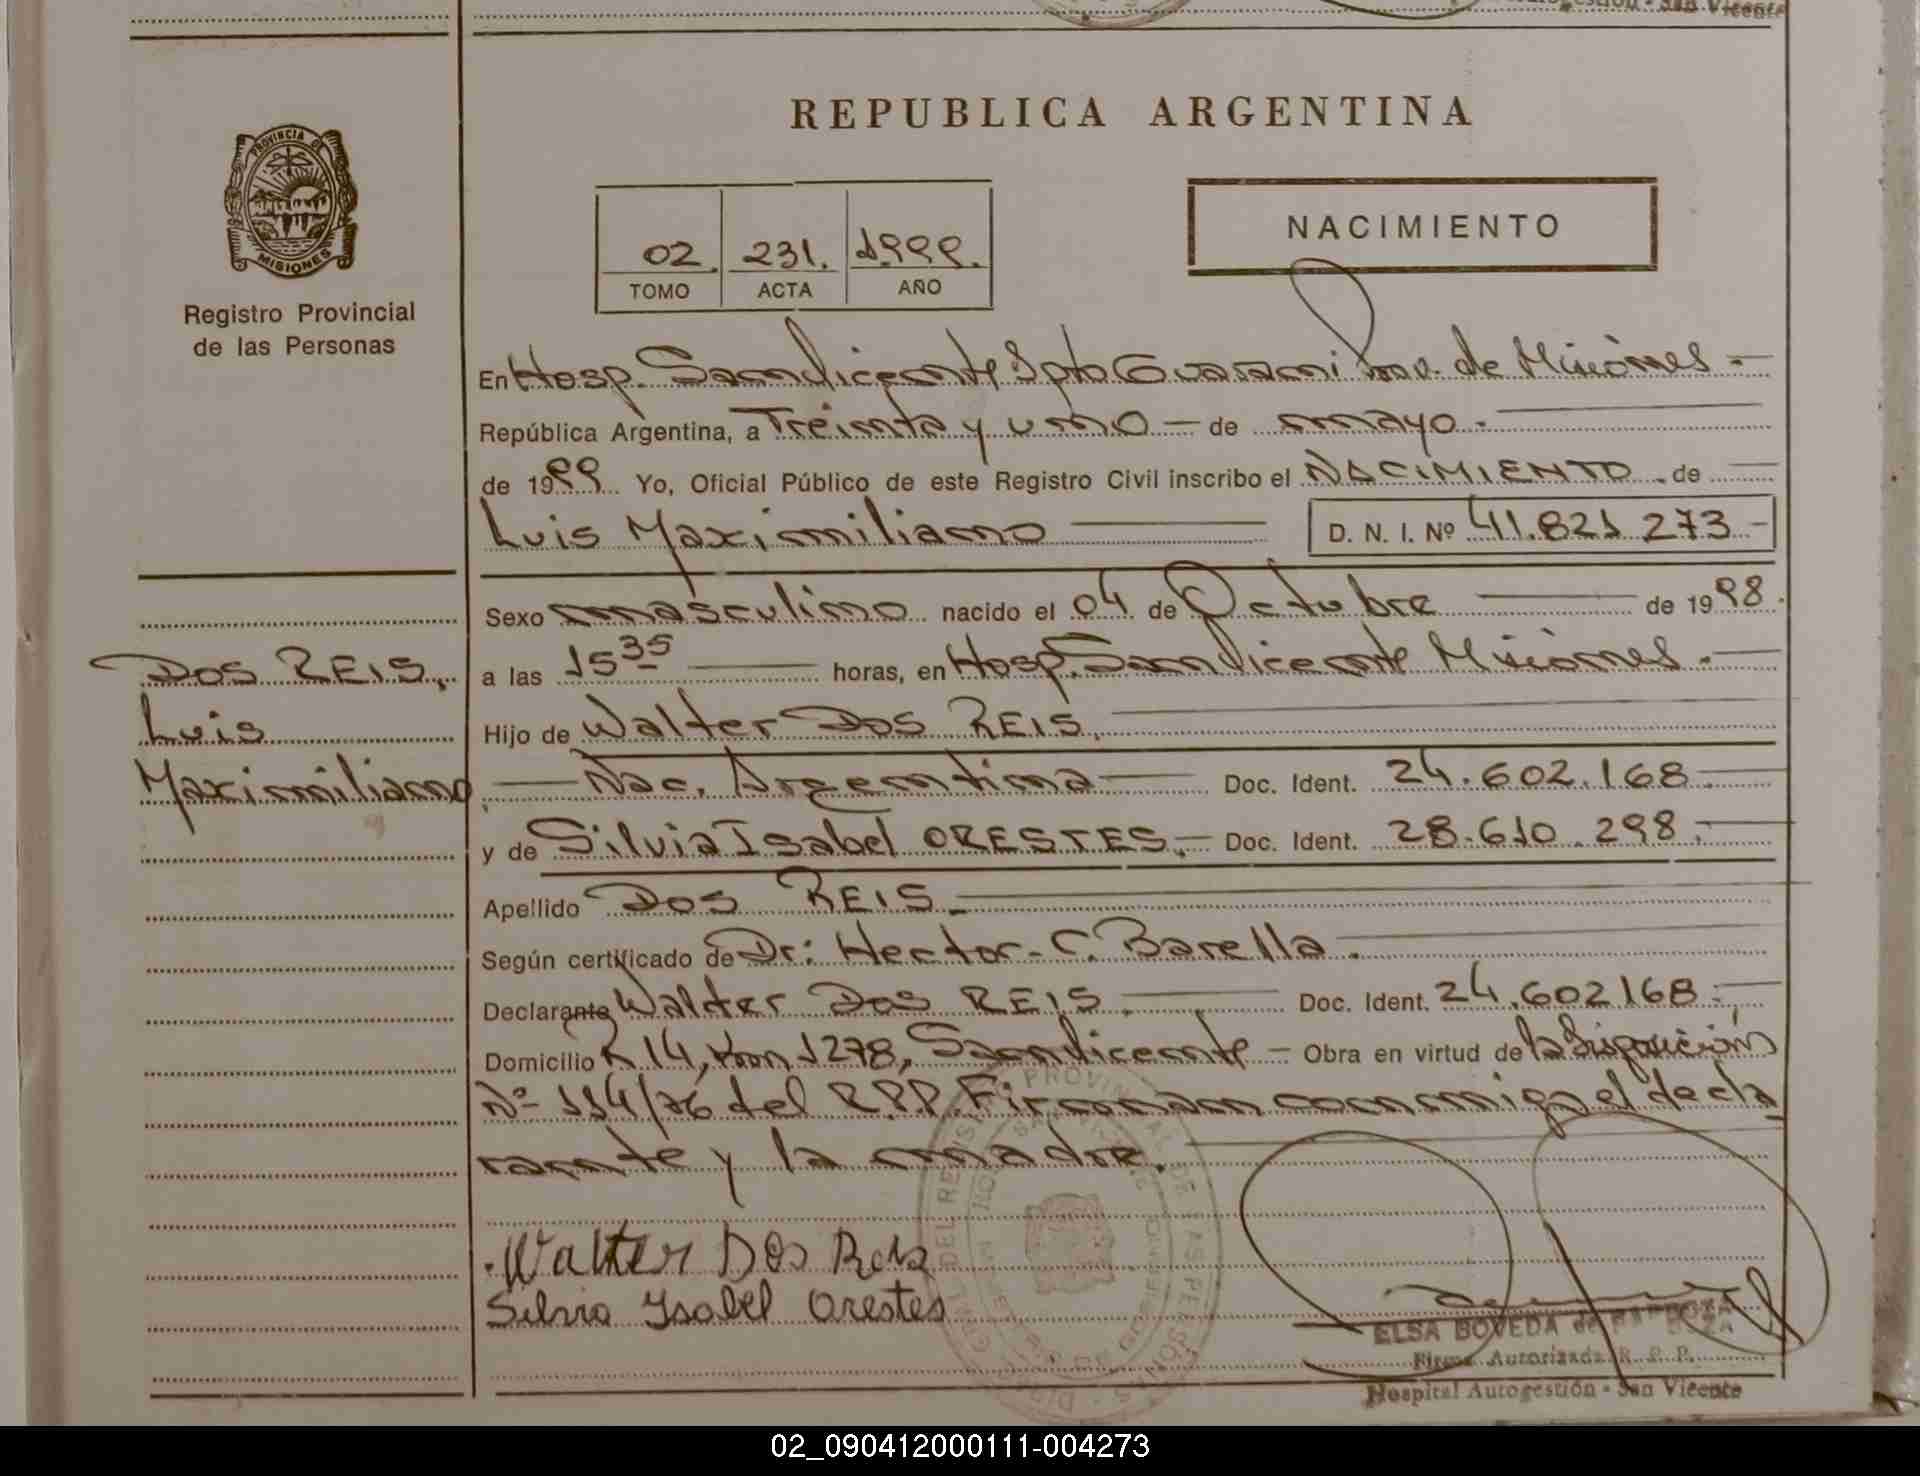 REPUBLICA ARGENTINA
PROVINCIA D
MISIONES
Registro Provincial
de las Personas
02. 231. 1999.
TOMO ACTA AÑO
NACIMIENTO
En Hosp. San Vicente Dpto Guarani Prov. de Misiones.-
República Argentina, a Treinta y uno - de mayo.-
de 1999. Yo, Oficial Público de este Registro Civil inscribo el NACIMIENTO de
Luis Maximiliano D. N. I. Nº 41.821 273-
Sexo masculino nacido el 04 de Octubre de 1998.
a las 15 35 horas, en Hosp. San Vicente Misiones.-
Hijo de Walter Dos REIS.
Nac. Argentina Doc. Ident. 24.602.168.
y de Silvia Isabel ORESTES.- Doc. Ident. 28.610.298.
Apellido Dos REIS.-
Según certificado de Dr: Hector-C. Barella.
Declarante Walter Dos REIS. Doc. Ident. 24.602168.-
Domicilio R 14, Km 1278, San Vicente - Obra en virtud de la Disposición
Nº 114/76 del R.P.P. Firman conmigo el decla
rante y la madre.
DOS REIS,
Luis
Maximiliano
Walter Dos Reis
Silvia Ysabel Orestes
PROVINCIAL DE LAS PERSONAS
ELSA BOVEDA de
Firma Autorizada R. P. P.
Hospital Autogestión - San Vicente
02_090412000111-004273